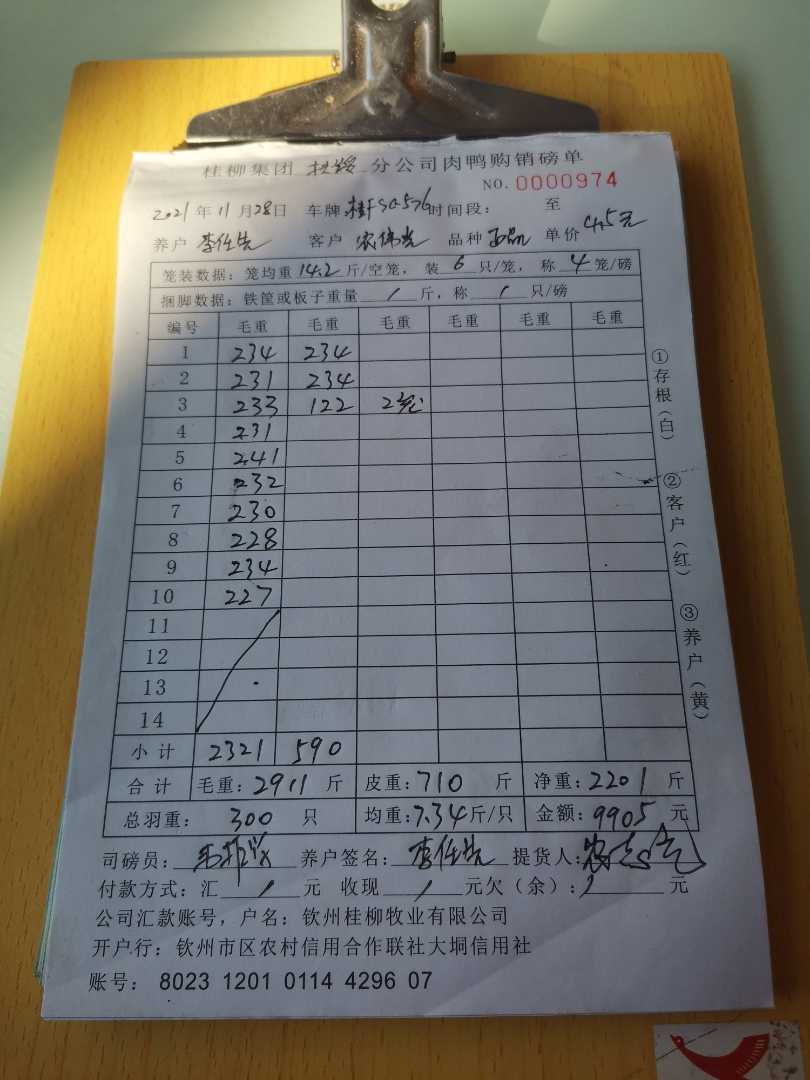 桂柳集团 扶绥 分公司肉鸭购销磅单
NO. 0000974
2021 年 11 月 28 日 车牌 时间段： 至
养户 李任先 客户 农伟光 品种 单价 4.5元
笼装数据：笼均重 14.2 斤/空笼，装 6 只/笼，称 4 笼/磅
捆脚数据：铁筐或板子重量 / 斤，称 / 只/磅
编号 毛重 毛重 毛重 毛重 毛重 毛重
1 234 234
2 231 234
3 233 122 2笼
4 231
5 241
6 232
7 230
8 228
9 234
10 227
11
12
13
14
小计 2321 590
合计 毛重：2911 斤 皮重：710 斤 净重：2201 斤
总羽重： 300 只 均重：7.34斤/只 金额：9905 元
司磅员： 养户签名： 李任先 提货人：
付款方式：汇 / 元 收现 / 元欠（余）： / 元
公司汇款账号，户名：钦州桂柳牧业有限公司
开户行：钦州市区农村信用合作联社大垌信用社
账号： 8023 1201 0114 4296 07
①存根（白）
②客户（红）
③养户（黄）